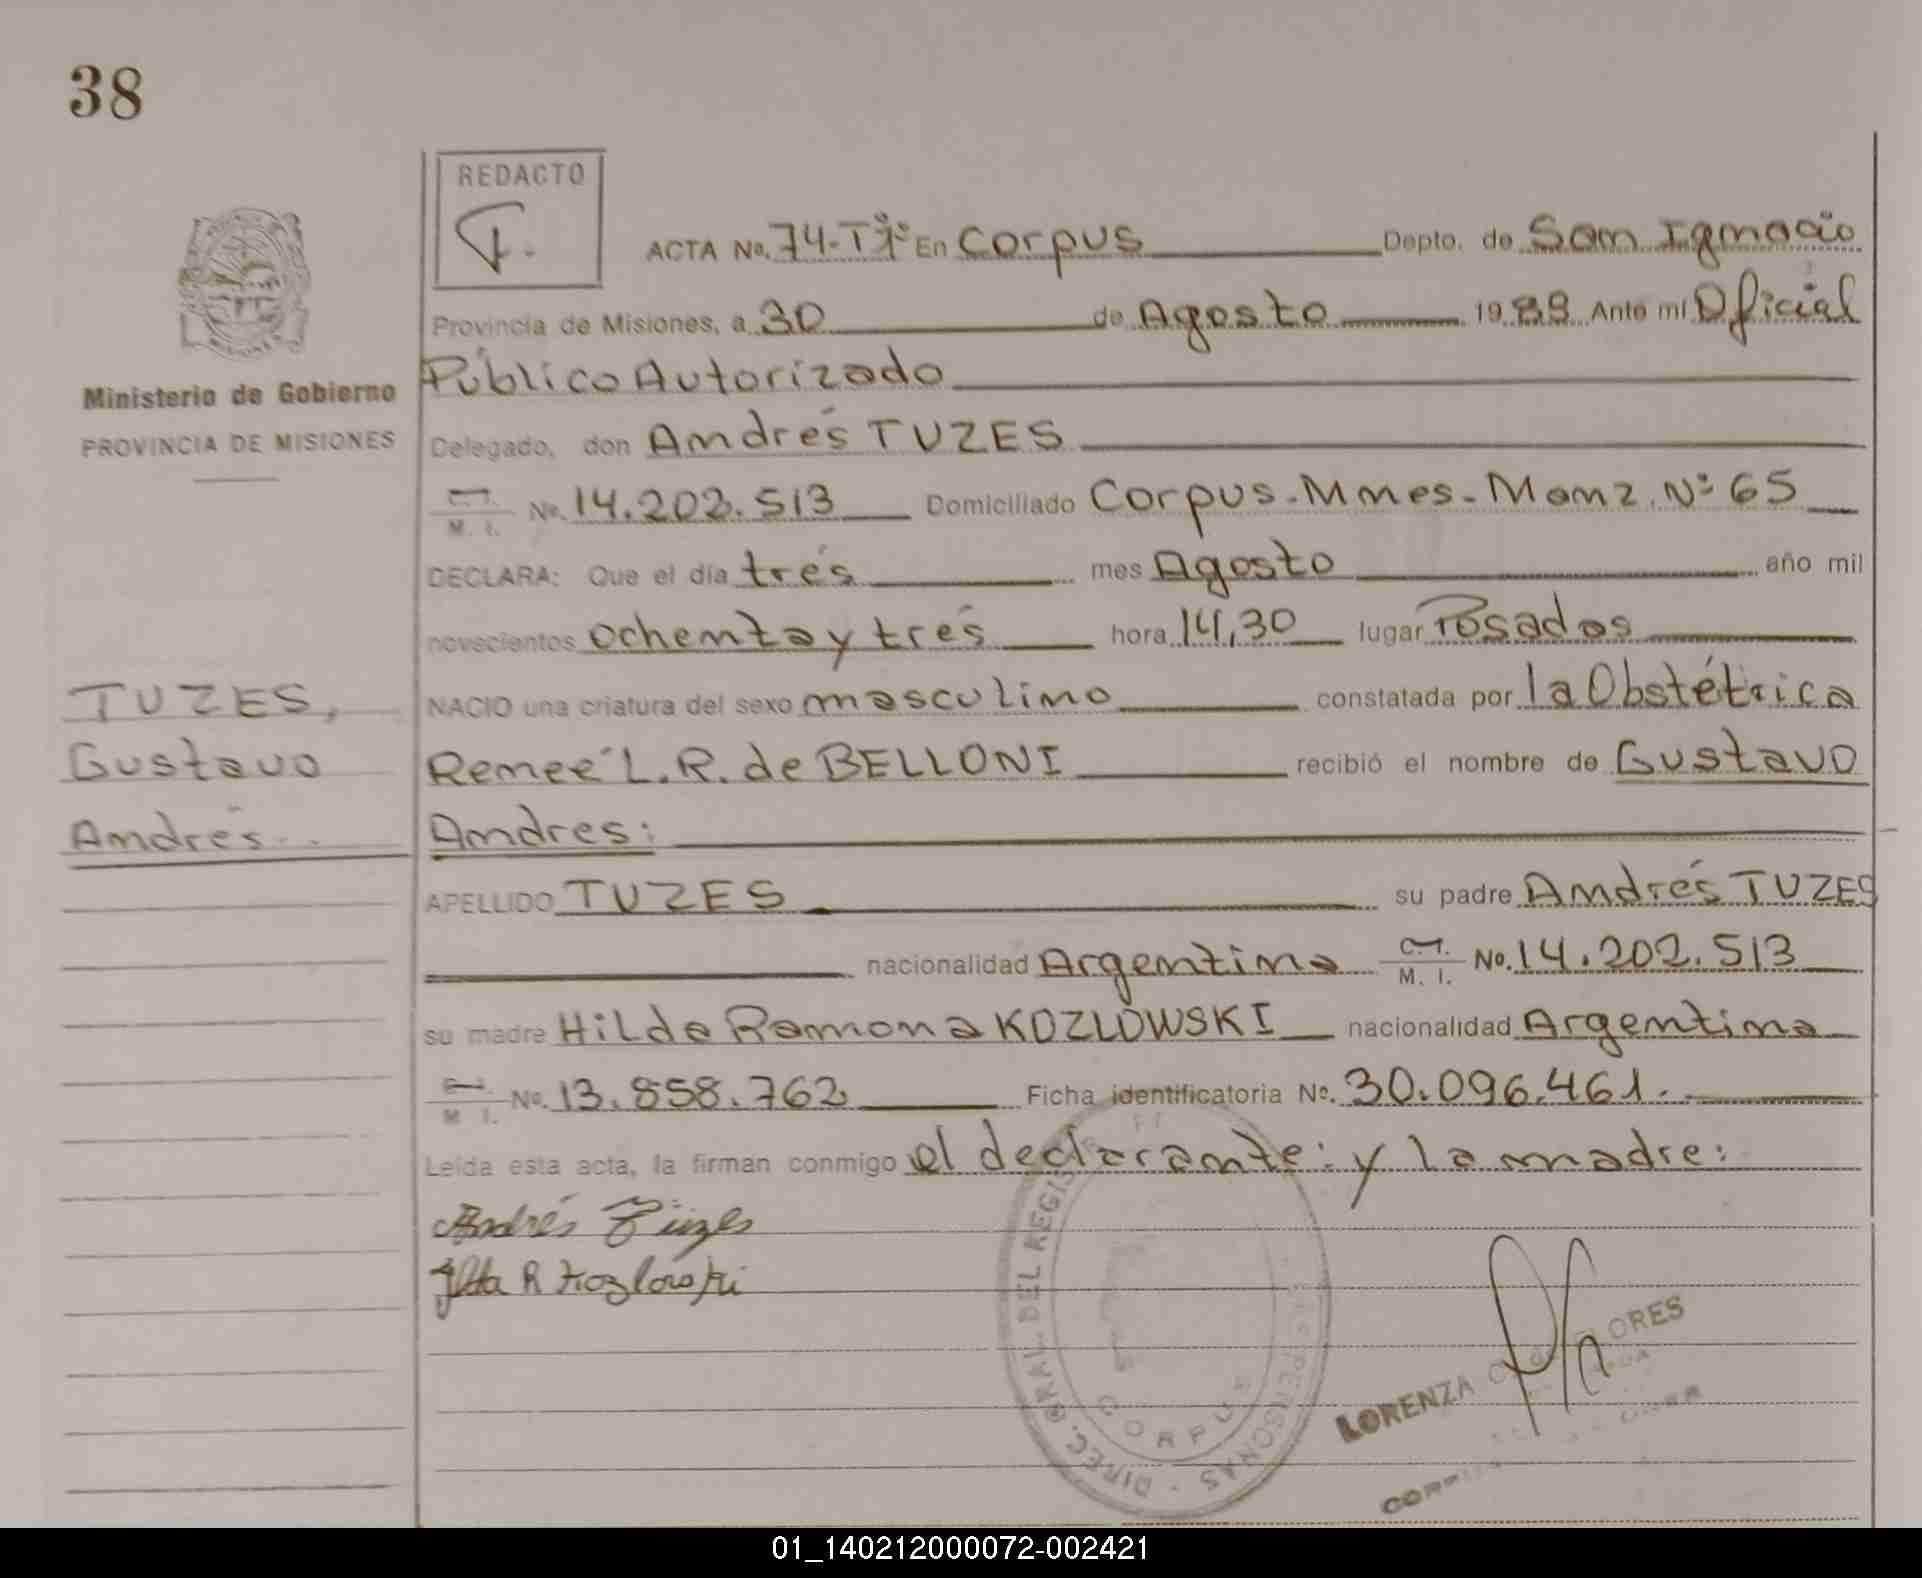 38
REDACTO
ACTA No. 74-Tº1º En Corpus Depto. de San Ignacio
Provincia de Misiones, a 30 de Agosto 1983 Ante mí Oficial
Público Autorizado
Ministerio de Gobierno
PROVINCIA DE MISIONES
Delegado, don Andrés TUZES
M. I. No. 14.202.513 Domiciliado Corpus-Mnes-Manz. Nº 65
DECLARA: Que el día trés mes Agosto año mil
novecientos ochenta y trés hora 14,30 lugar Posadas
TUZES,
Gustavo
Andrés
NACIO una criatura del sexo masculino constatada por la Obstétrica
Reneé L. R. de BELLONI recibió el nombre de Gustavo
Andres:
APELLIDO TUZES su padre Andrés TUZES
nacionalidad Argentina M. I. No. 14.202.513
su madre Hilda Ramona KOZLOWSKI nacionalidad Argentina
M I. No. 13.858.762 Ficha identificatoria No. 30.096.461.
Leída esta acta, la firman conmigo el declarante: y la madre:
Andrés Tüzes
Ilda R Kozlowski
DIREC. GRAL. DEL REGIS PERSONAS
CORPUS
LORENZA FLORES
01_140212000072-002421